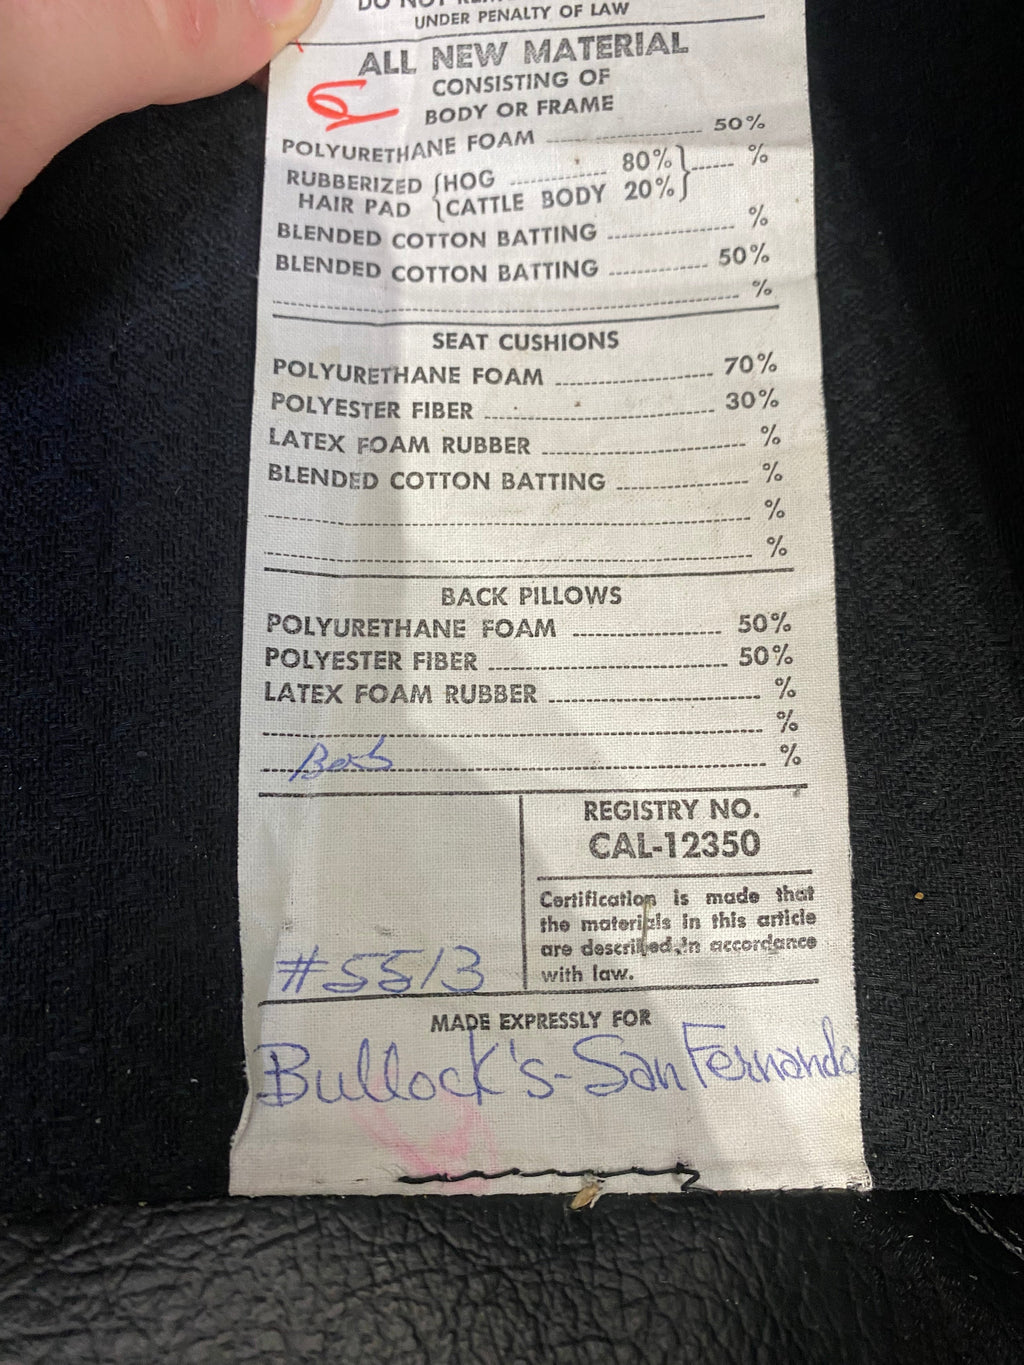 UNDER PENALTY OF LAW
ALL NEW MATERIAL
CONSISTING OF
BODY OR FRAME
POLYURETHANE FOAM 50%
RUBBERIZED HAIR PAD { HOG 80% } %
{ CATTLE BODY 20% }
BLENDED COTTON BATTING %
BLENDED COTTON BATTING 50%
%
SEAT CUSHIONS
POLYURETHANE FOAM 70%
POLYESTER FIBER 30%
LATEX FOAM RUBBER %
BLENDED COTTON BATTING %
%
%
BACK PILLOWS
POLYURETHANE FOAM 50%
POLYESTER FIBER 50%
LATEX FOAM RUBBER %
%
%
REGISTRY NO.
CAL-12350
Certification is made that
the materials in this article
are described, in accordance
with law.
#5513
MADE EXPRESSLY FOR
Bullock's-San Fernando